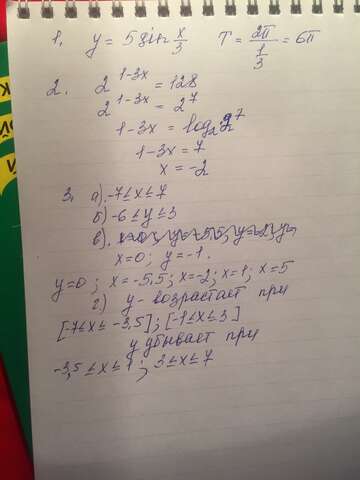 1, y = 5 sin x/3 T = 2π / 1/3 = 6π
2. 2^{1-3x} = 128
2^{1-3x} = 2^7
1-3x = log_2 2^7
1-3x = 7
x = -2
3. а) -7 ≤ x ≤ 7
б) -6 ≤ y ≤ 3
в).
x=0; y=-1.
y=0; x=-5,5; x=-2; x=1; x=5
г) y - возрастает при
[-7≤x≤-3,5]; [-1≤x≤3]
y убывает при
-3,5 ≤ x ≤ 1; 3 ≤ x ≤ 7